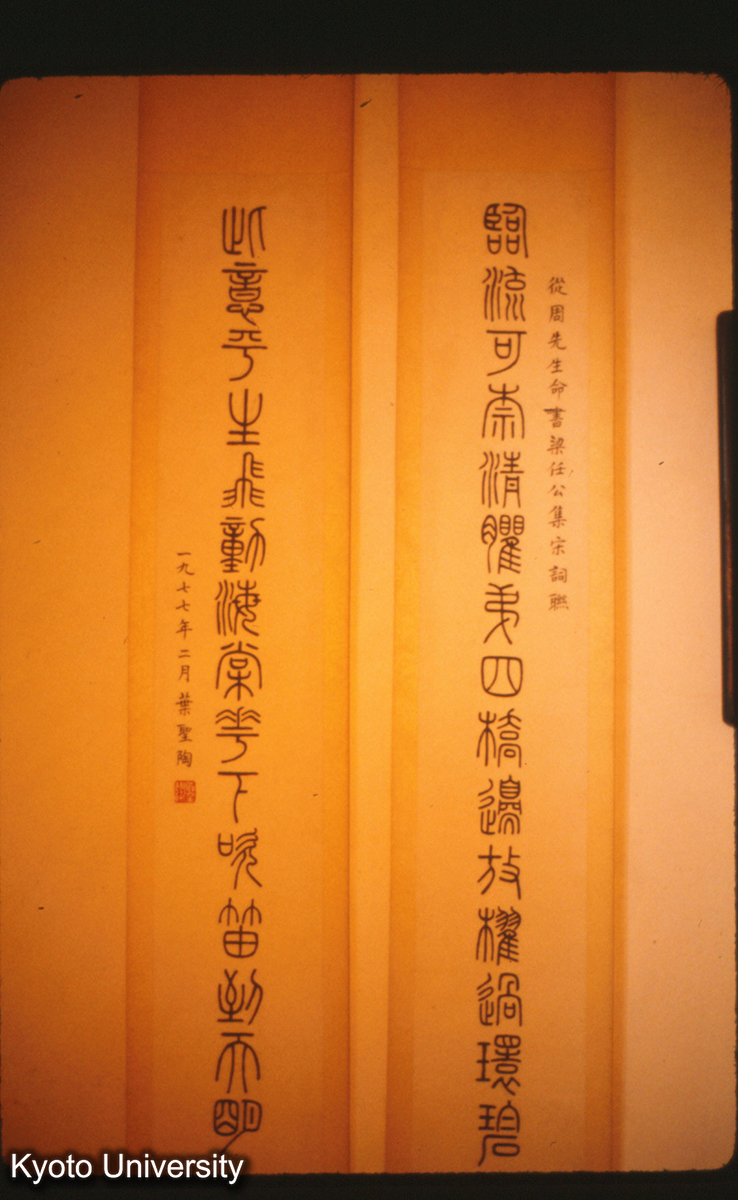 從周先生命書梁任公集宋詞聯
臨流可奈清癯弟四橋邊放櫂過環碧
此意平生飛動海棠花下吹笛到天明
一九七七年二月 葉聖陶
Kyoto University